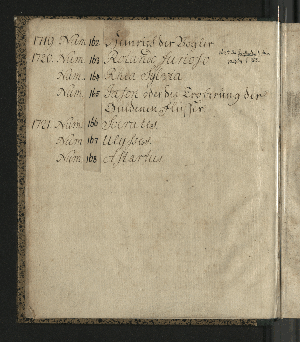 1719. Num. 162 Heinrich der Vogler
1720. Num. 163 Rolando furioso
Num. 164 Rhea Sylvia
Num. 165 Jason oder die Eroberung der
Guldenen Flüsses.
1721. Num. 166 Socrates
Num. 167 Ulysses.
Num. 168 Astartus